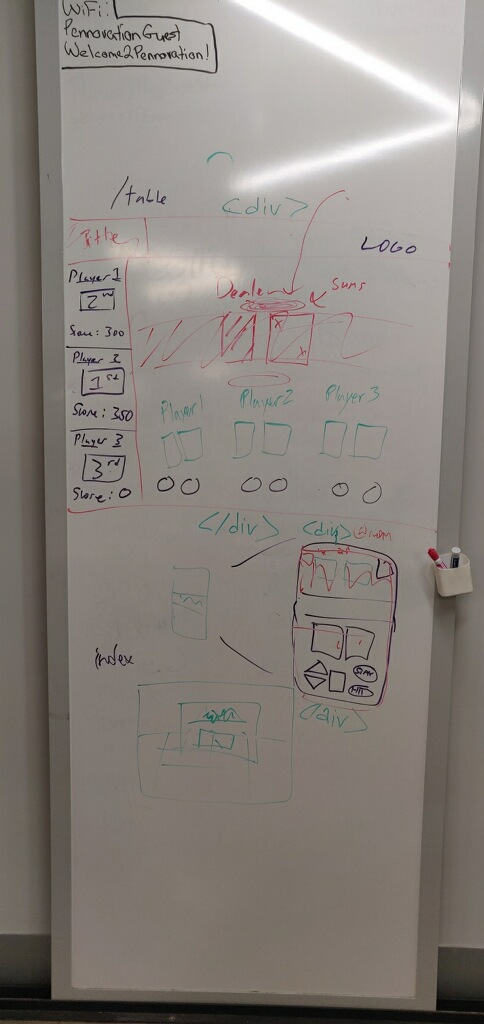 WiFi:
PennovationGuest
Welcome2Pennovation!
/table
<div>
Title
LOGO
Player 1
2nd
Score: 300
Player 2
1st
Score: 350
Player 3
3rd
Score: 0
Dealer
Sums
x
x
Player1
Player2
Player3
</div>
<div>
STAY
HIT
index
</div>